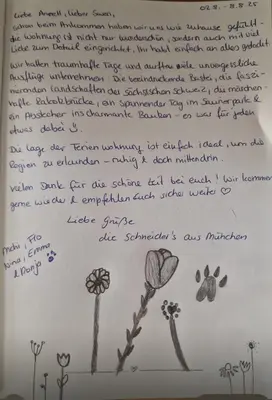 02.11. - 8.11.25
Liebe Annett, Lieber Swen,
schon beim Ankommen haben wir uns wie zuhause gefühlt -
die Wohnung ist nicht nur wunderschön, sondern auch mit viel
Liebe zum Detail eingerichtet. Ihr habt einfach an alles gedacht
Wir hatten traumhafte Tage und durften viele unvergessliche
Ausflüge unternehmen. Die beeindruckende Bastei, die faszi-
nierenden Landschaften der Sächsischen Schweiz, die märchen-
hafte Rakotzbrücke, ein spannender Tag im Saurierpark &
ein Abstecher ins charmante Bautzen - es war für jeden
etwas dabei
Die Lage der Ferienwohnung ist einfach ideal, um die
Region zu erkunden - ruhig & doch mittendrin.
Vielen Dank für die schöne Zeit bei euch! Wir kommen
gerne wieder & empfehlen Euch sicher weiter ♡
Liebe Grüße
die Schneider's aus München
Flo
Nina, Emma